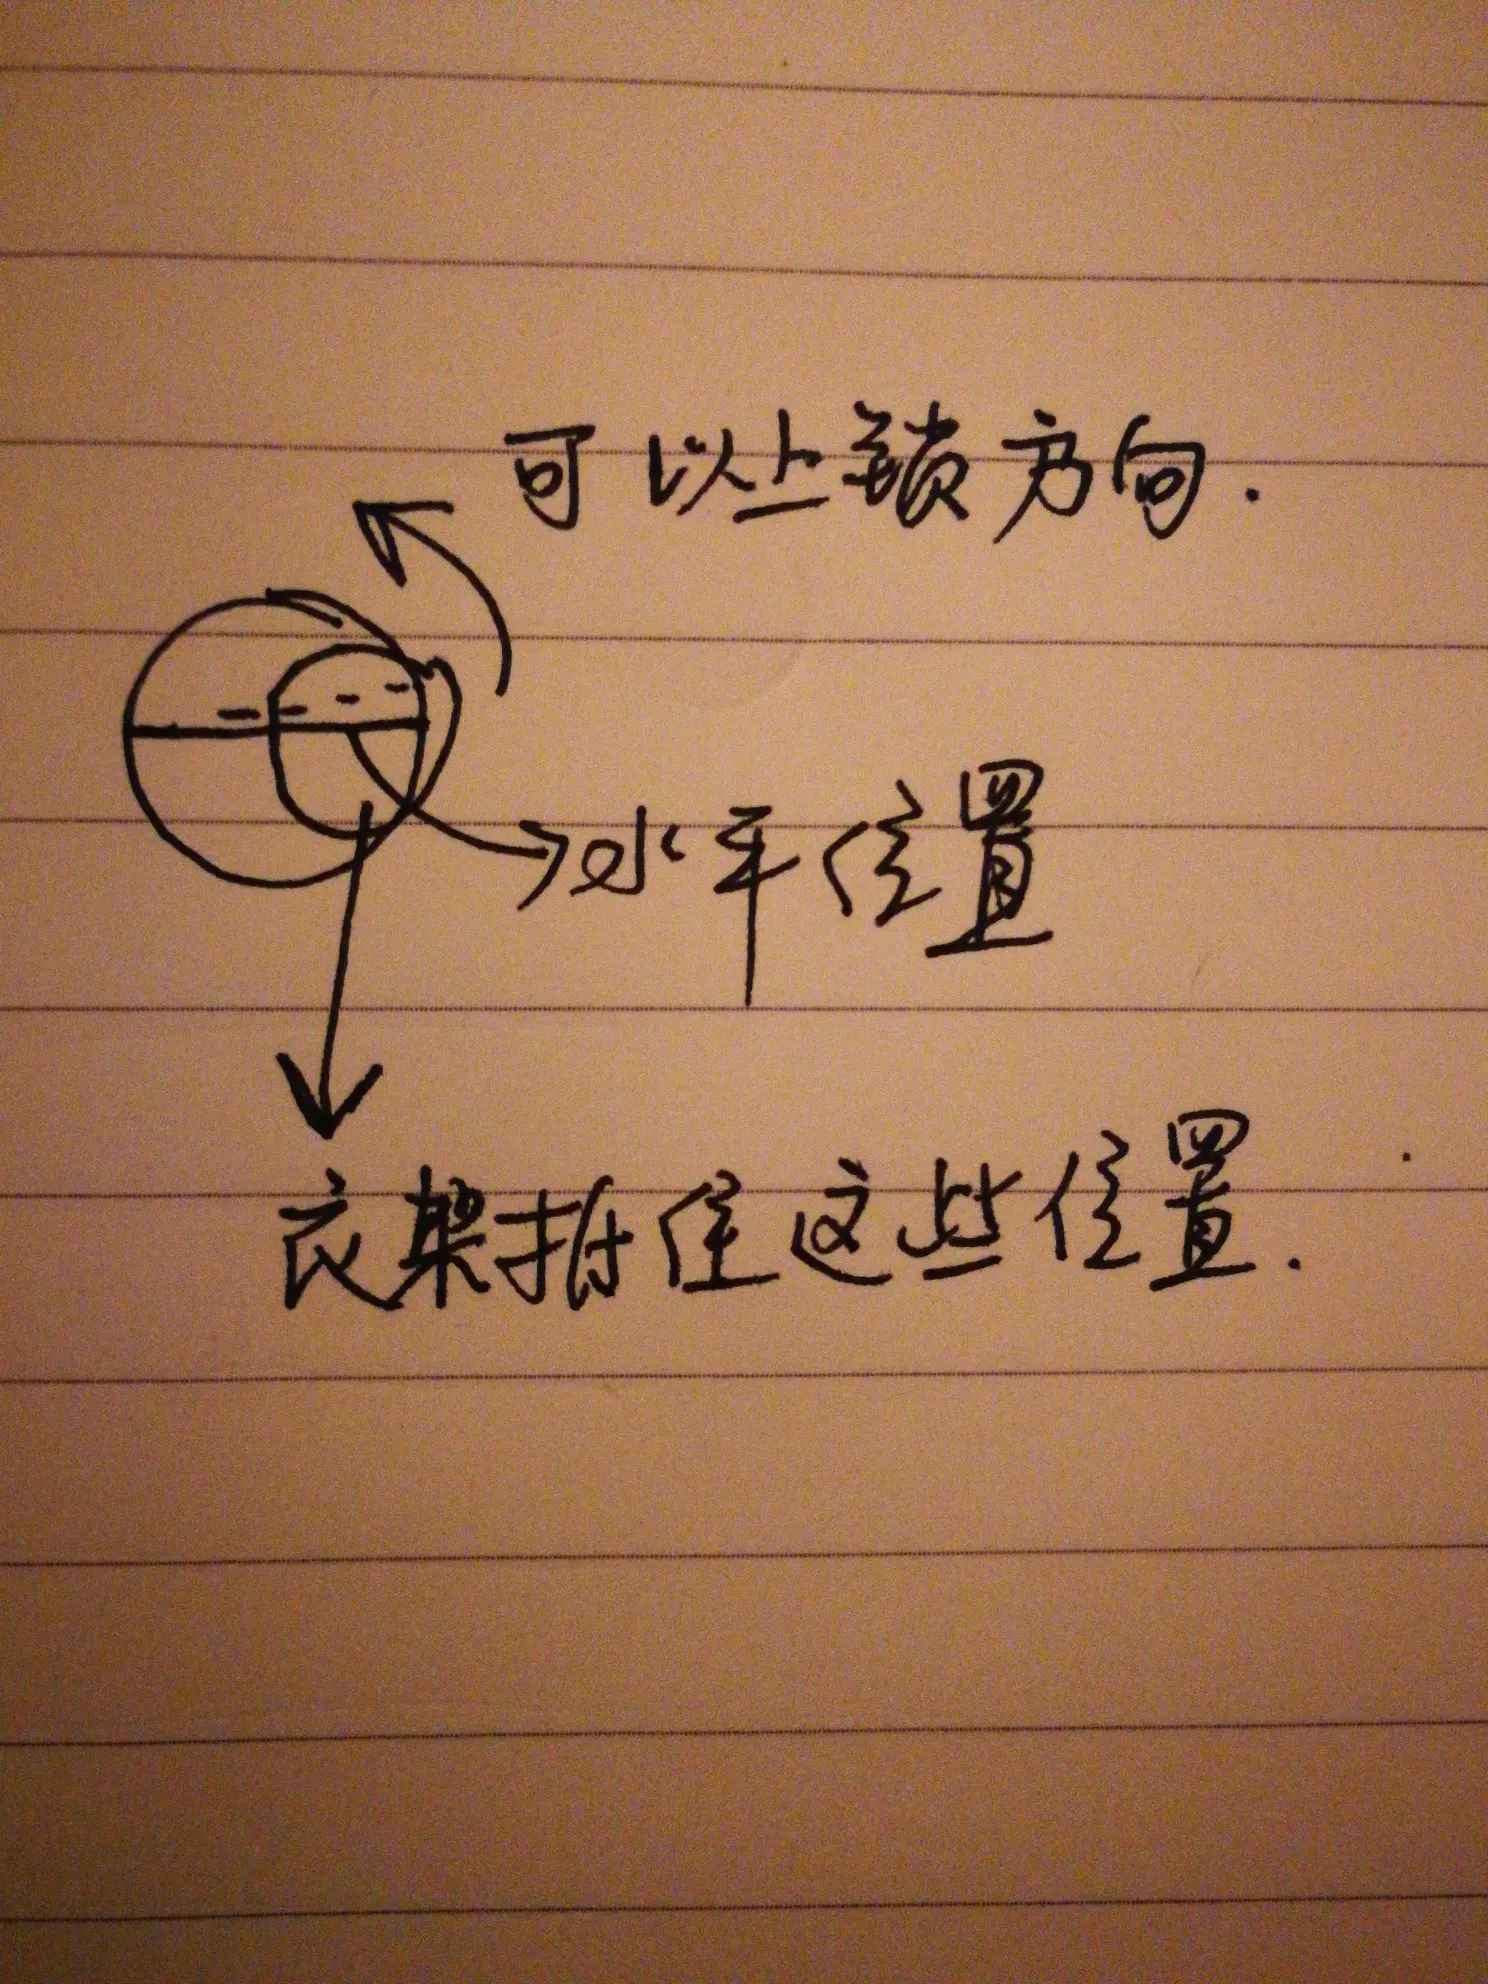 可以上锁方向.
水平位置
衣架挂住这些位置.